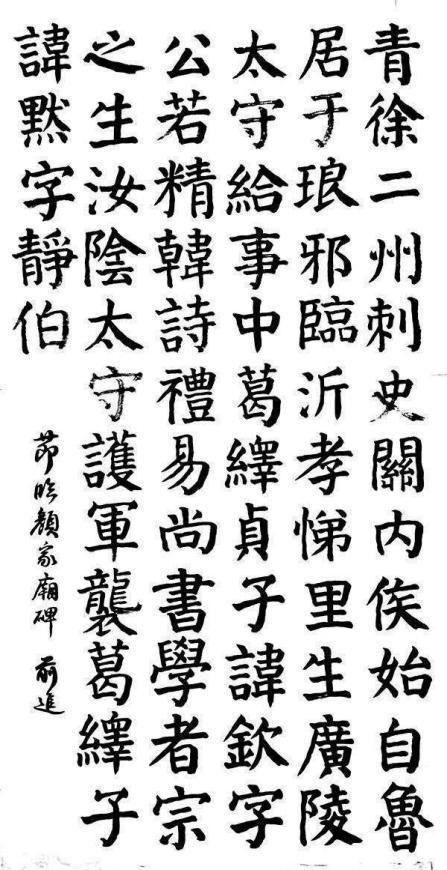 青徐二州刺史關内侯始自魯
居于琅邪臨沂孝悌里生廣陵
太守給事中葛繹貞子諱欽字
公若精韓詩禮易尚書學者宗
之生汝陰太守護軍襲葛繹子
諱默字靜伯
節臨顏家廟碑 前進